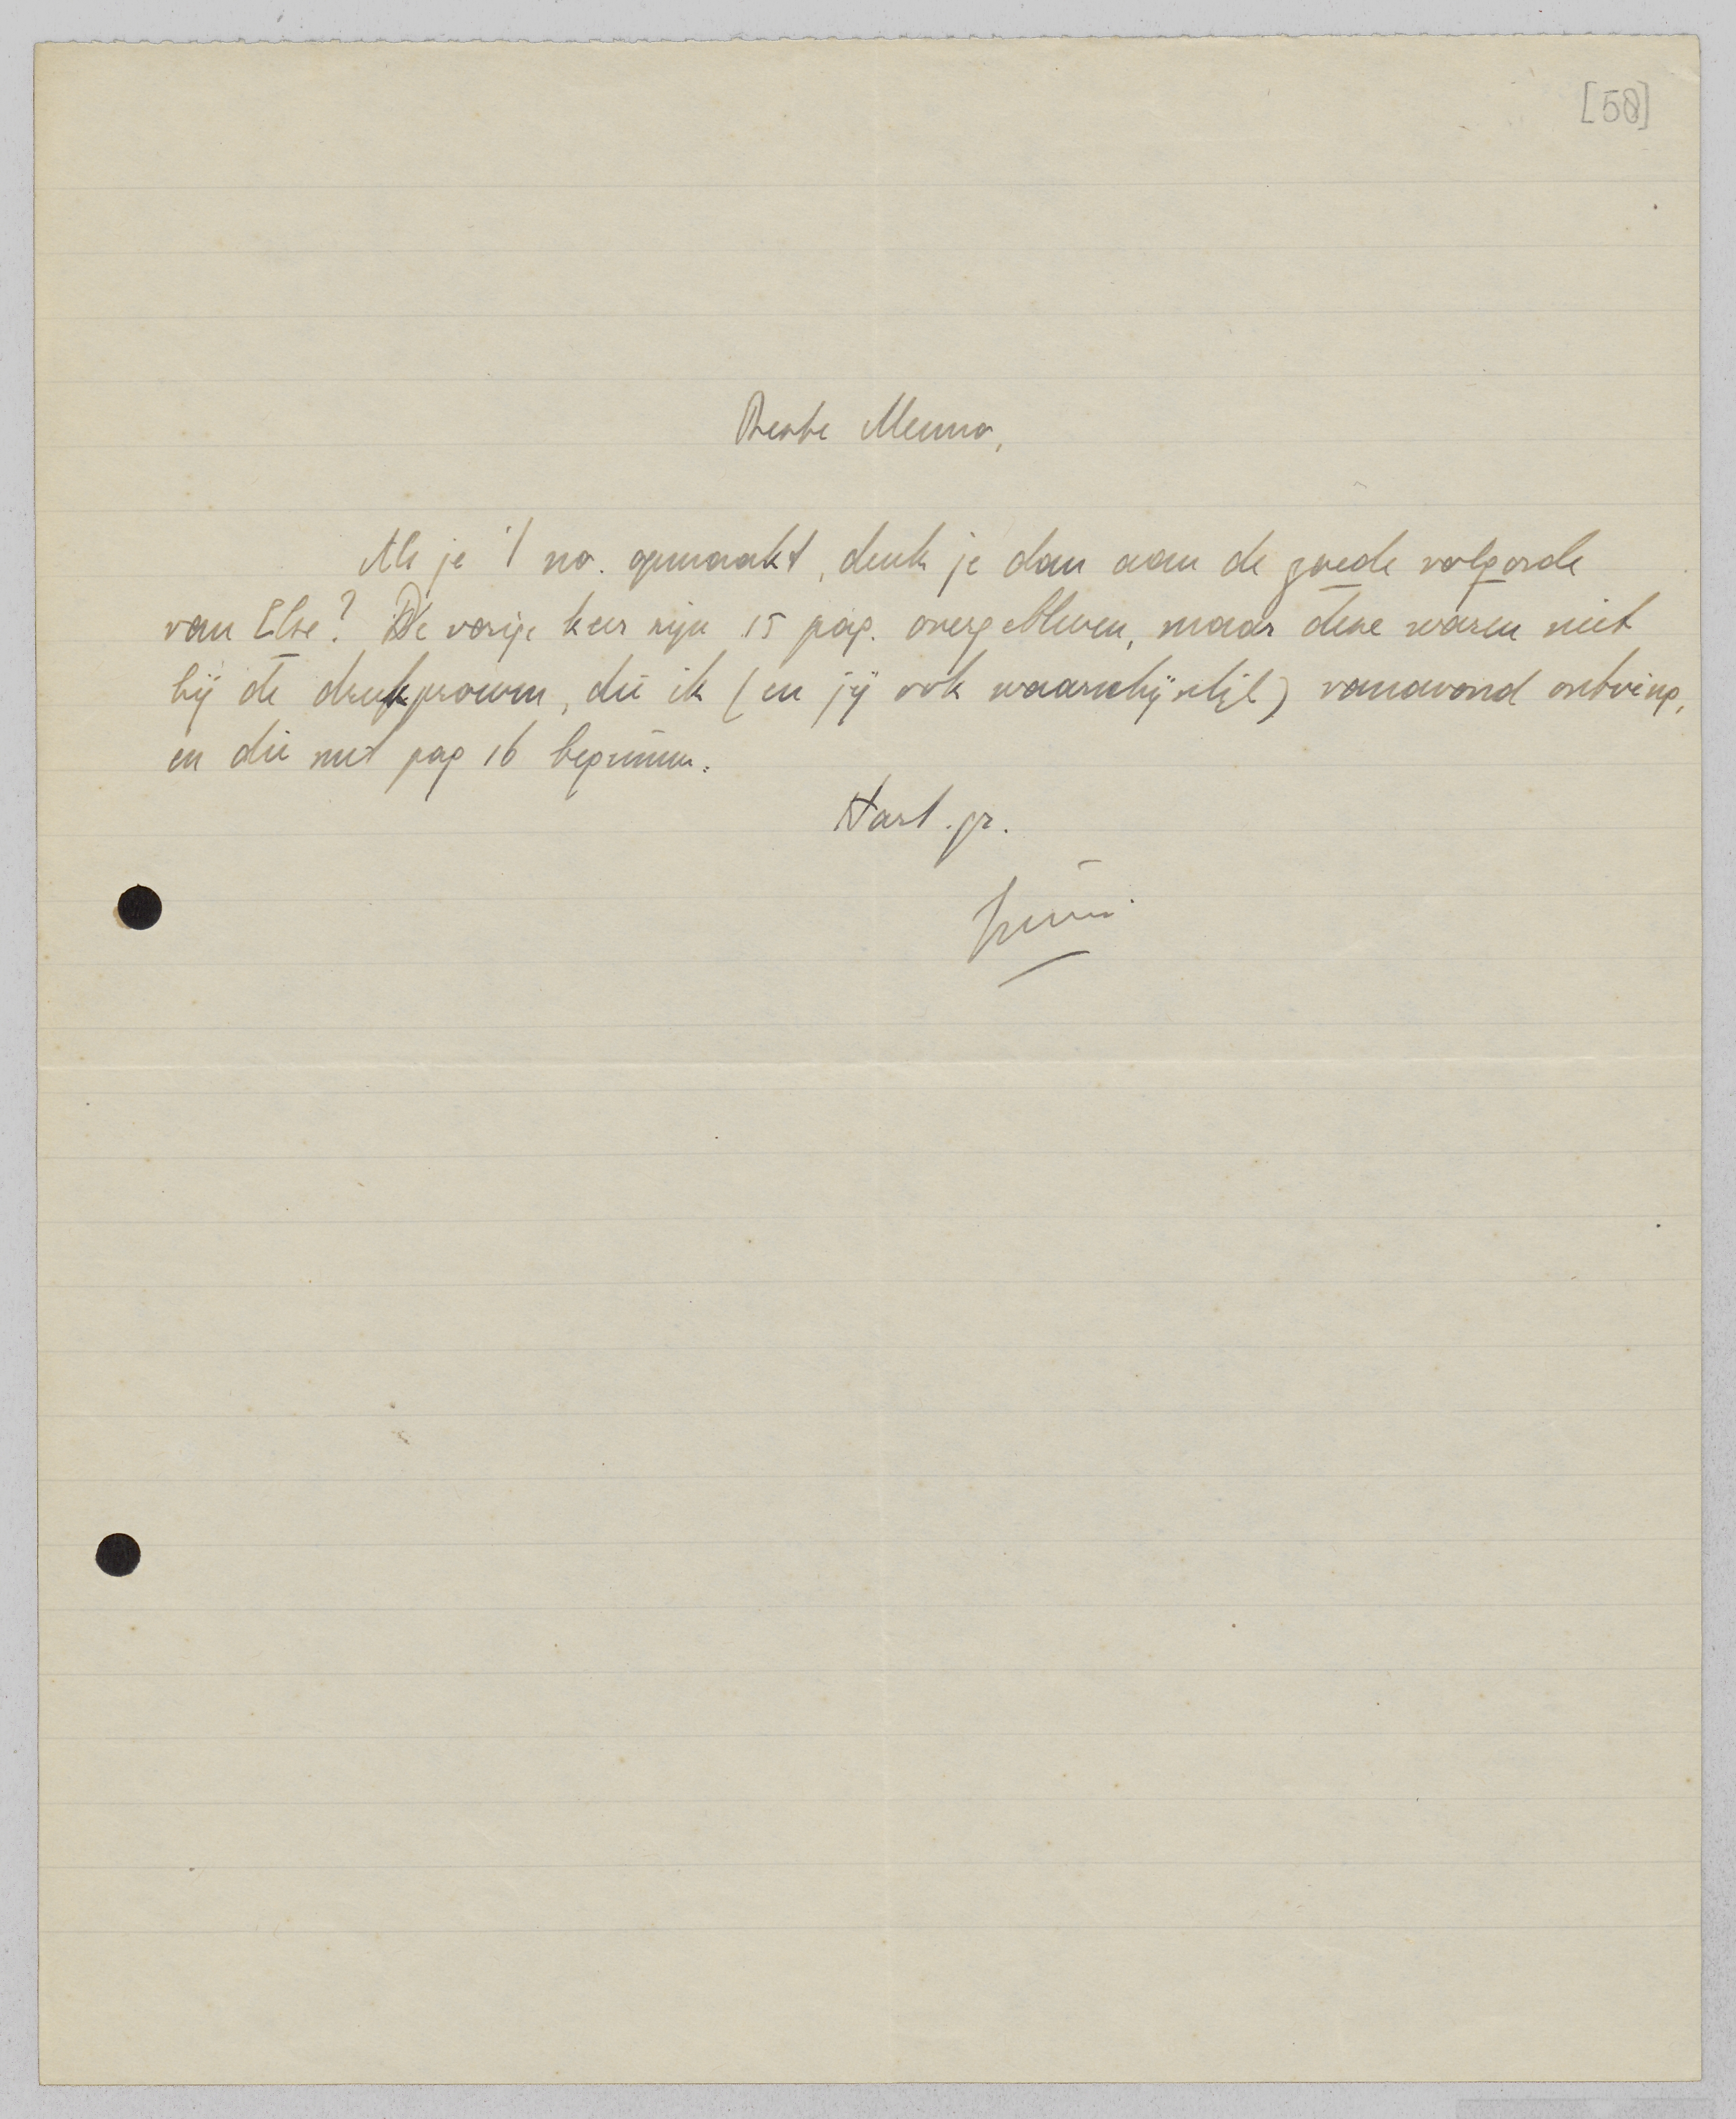 [58]
Beste Menno,
Als je 't no. opmaakt, denk je dan aan de goede volgorde
van Else? De vorige keer zijn 15 pag. overgebleven, maar deze waren niet
bij de drukproeven, die ik (en jij ook waarschijnlijk) vanavond ontving,
en die met pag 16 beginnen.
Hart. gr.